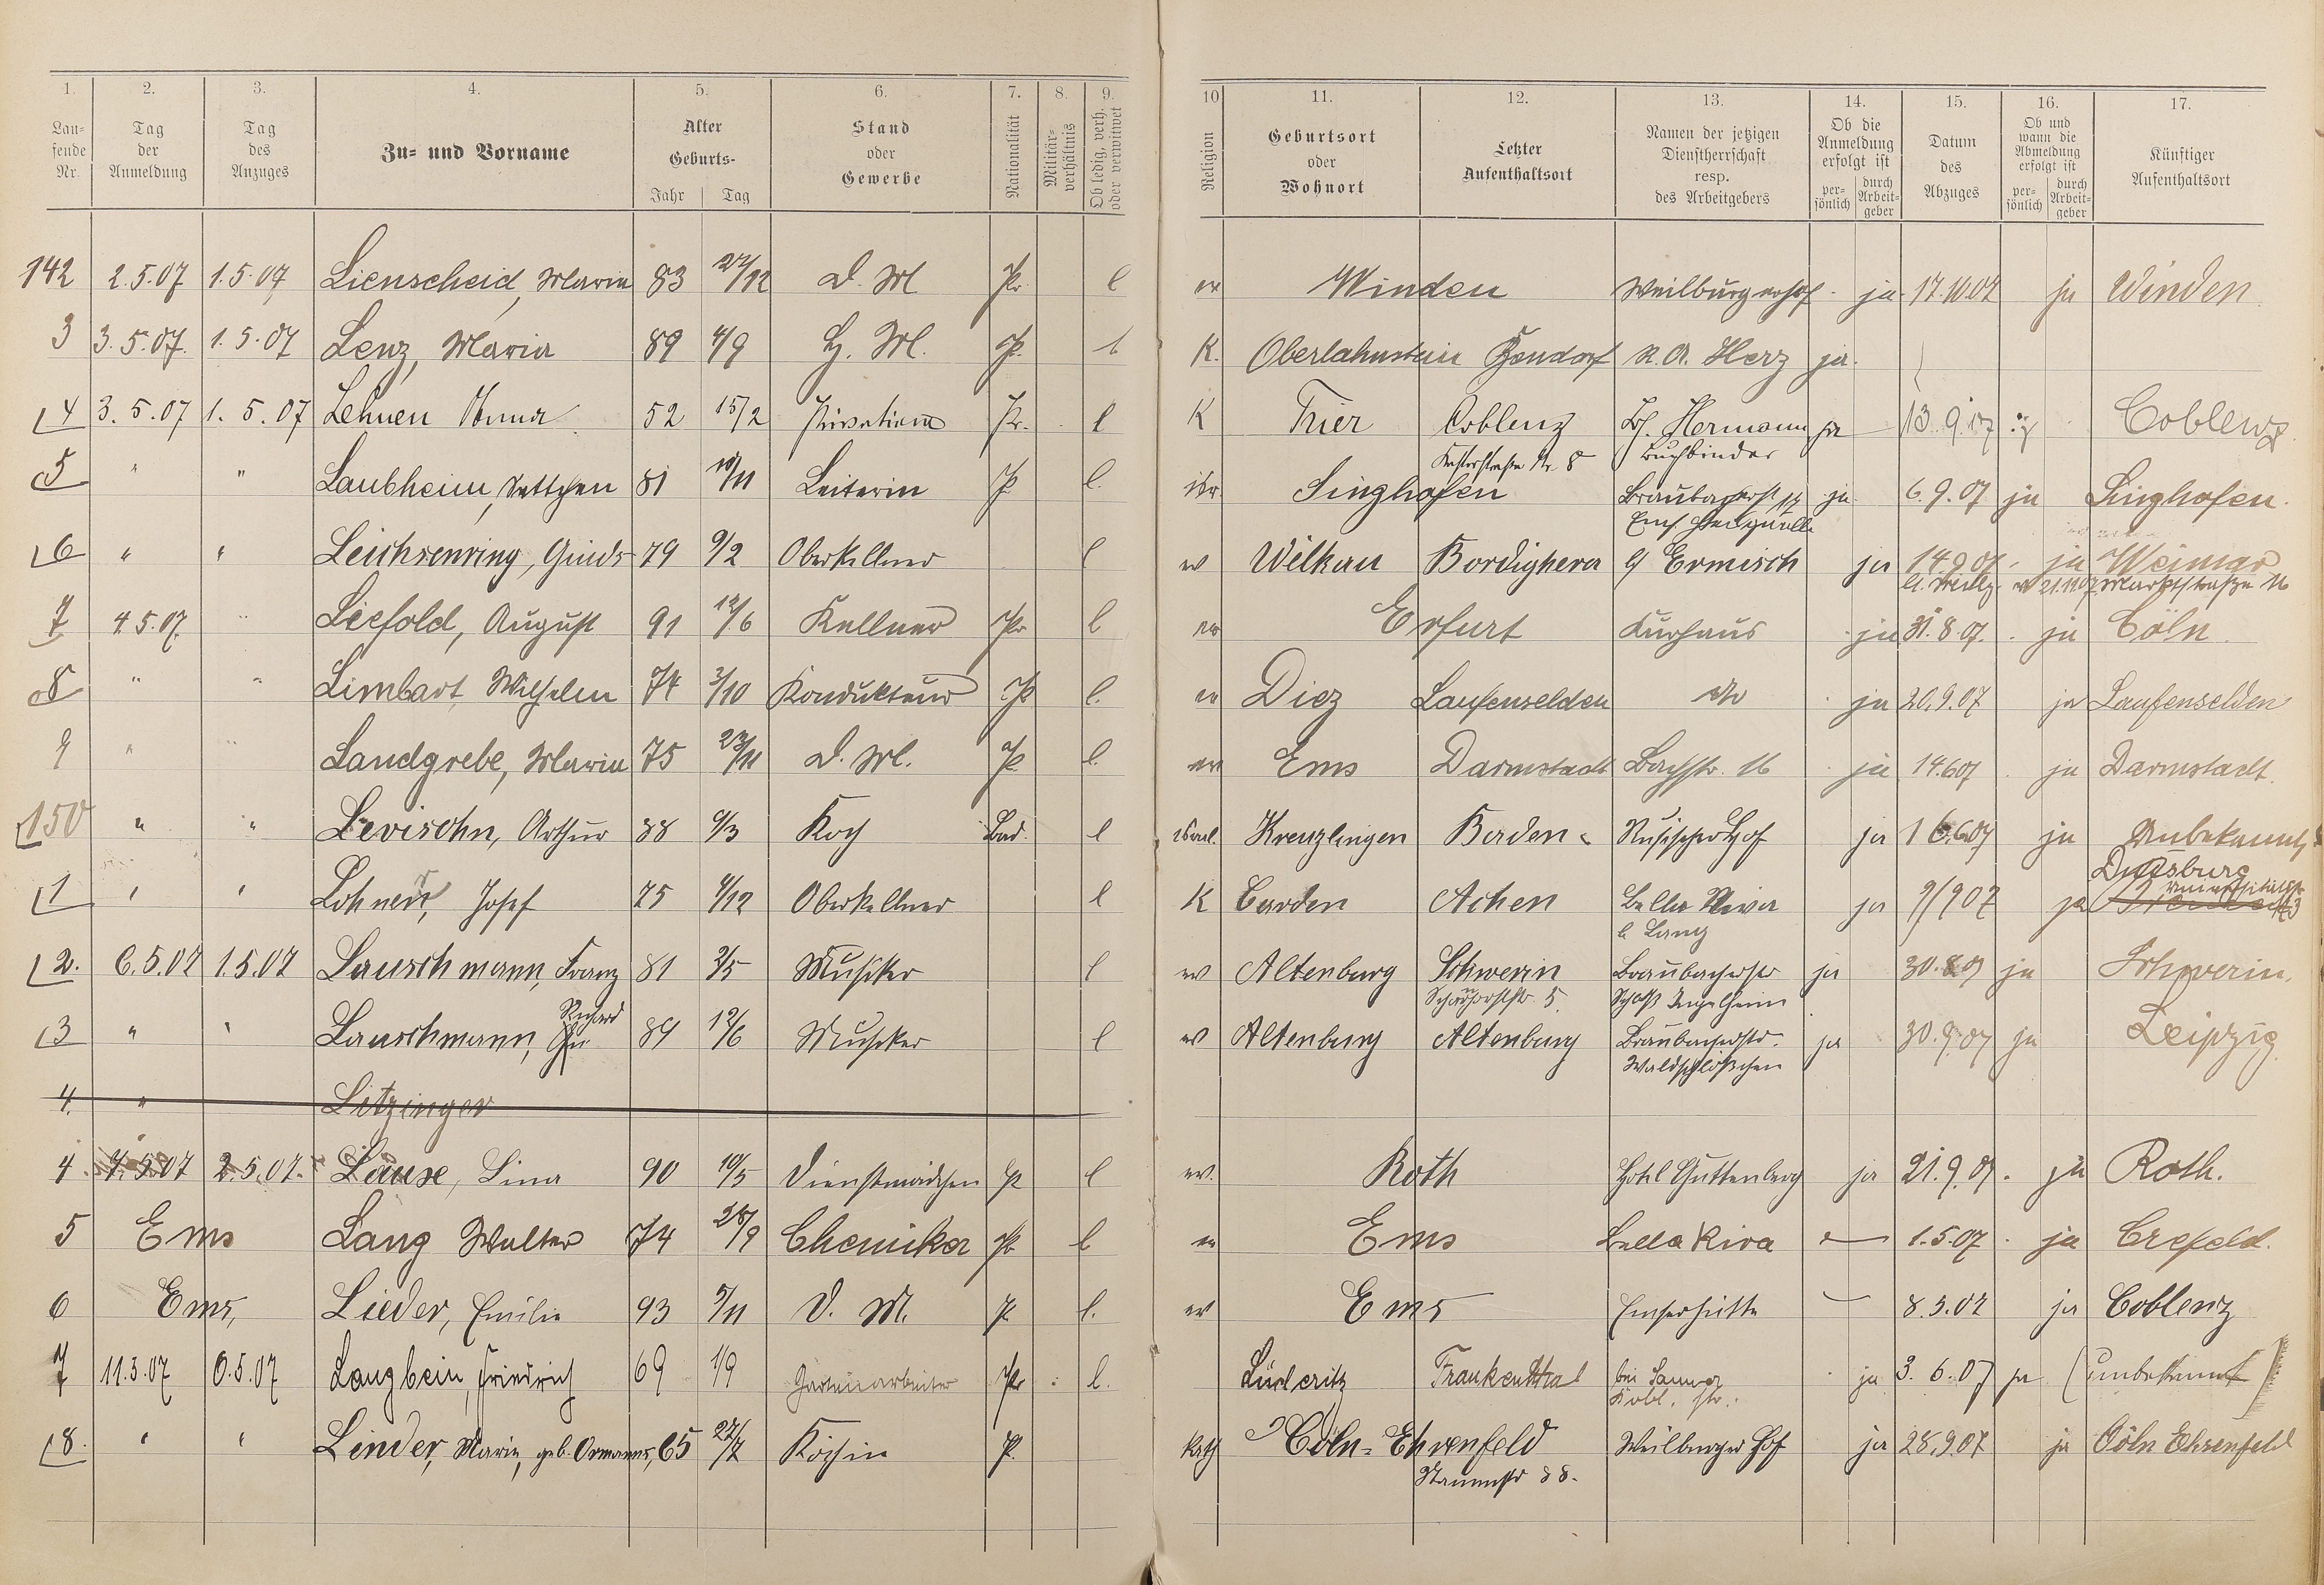 1. 2. 3. 4. 5. 6. 7. 8. 9. 10 11. 12. 13. 14. 15. 16. 17.
Lau-
fende
Nr.
Tag
der
Anmeldung
Tag
des
Anzuges
Zu- und Vorname
Alter
Geburts-
Jahr Tag
Stand
oder
Gewerbe
Nationalität
Militär-
verhältnis
Ob ledig, verh.
oder verwitwet
Religion
Geburtsort
oder
Wohnort
Letzter
Aufenthaltsort
Namen der jetzigen
Dienstherrschaft
resp.
des Arbeitgebers
Ob die
Anmeldung
erfolgt ist
per-
sönlich
durch
Arbeit-
geber
Datum
des
Abzuges
Ob und
wann die
Abmeldung
erfolgt ist
per-
sönlich
durch
Arbeit-
geber
Künftiger
Aufenthaltsort
142 2.5.07 1.5.07 Lienscheid, Maria 83 27/12 D. M Pr. l ev Winden Weilburgerhof ja 17.10.07 ja Winden
3 3.5.07. 1.5.07 Lenz, Maria 89 4/9 H. M. P. l K. Oberlahnstein Bendorf N. A. Herz ja.
4 3.5.07 1.5.07 Lehnen Anna 52 15/2 Pr. l K Trier Coblenz Hermann ja 13.9.07 Coblenz
Nr. 8 Buchbinder
5 " " Laubheim, Jettchen 81 10/11 Leiterin P l. isr. Singhofen ja 6.9.07 ja Singhofen.
6 " " Leichsenring, 79 9/2 Oberkellner l ev Wilkau Bordighera Ermisch ja 14.9.07 ja Weimar
21.11.07 Marktstraße 16
7 4.5.07 " Liefold, August 91 12/6 Kellner Pr l ev Erfurt Kurhaus ja 31.8.07. ja Cöln
8 " " Limbart Wilhelm 74 3/10 Kondukteur P l. ev Diez Laufenselden do ja 20.9.07 ja Laufenselden
9 " " Landgrebe, Maria 75 23/11 D. M. P l. ev Ems Darmstadt Bachstr. 16 ja 14.6.07 ja Darmstadt.
150 " " Levisohn, Arthur 88 9/3 Koch Bad. l israel. Kreuzlingen Baden- Russischer Hof ja 16.6.07 ja Unbekannt
1 " " Lohner, Josef 75 4/12 Oberkellner l K Carden Achen Bella Riva ja 9/9 07 ja Duisburg
b Lang
2. 6.5.07 1.5.07 Lauschmann, Franz 81 3/5 Musiker l ev Altenburg Schwerin Braubacherstr ja 30.8.07 ja Schwerin.
Scharnhorststr. 5. Schloß Langenheim
3 " " Lauschmann, Richard 89 12/6 Musiker l ev Altenburg Altenburg Braubacherstr. ja 30.9.07 ja Leipzig
Waldschlößchen
4. " Litzinger
4. 7.5.07 2.5.07. Lause, Lina 90 10/5 Dienstmädchen P l ev. Roth Hotel Guttenberg ja 21.9.07. ja Roth.
5 Ems Lang Walter 74 28/9 Chemiker Pr l ev Ems Bella Riva 1.5.07. ja Crefeld.
6 Ems, Lieder, Emilie 93 5/11 D. M. P l. ev Ems Emserhütte 8.5.07 ja Coblenz
7 11.5.07 6.5.07 Langbein, Friedrich 69 1/9 Gartenarbeiter Pr. l. Lüderitz Frankenthal bei ja 3.6.07 ja (unbekannt)
Kobl. str.
8. " " Linder, Marie, geb. Ormanns, 65 27/7 Köchin P. kath Cöln-Ehrenfeld Weilburger Hof ja 28.9.07 ja Cöln Ehrenfeld
Stammstr 88.